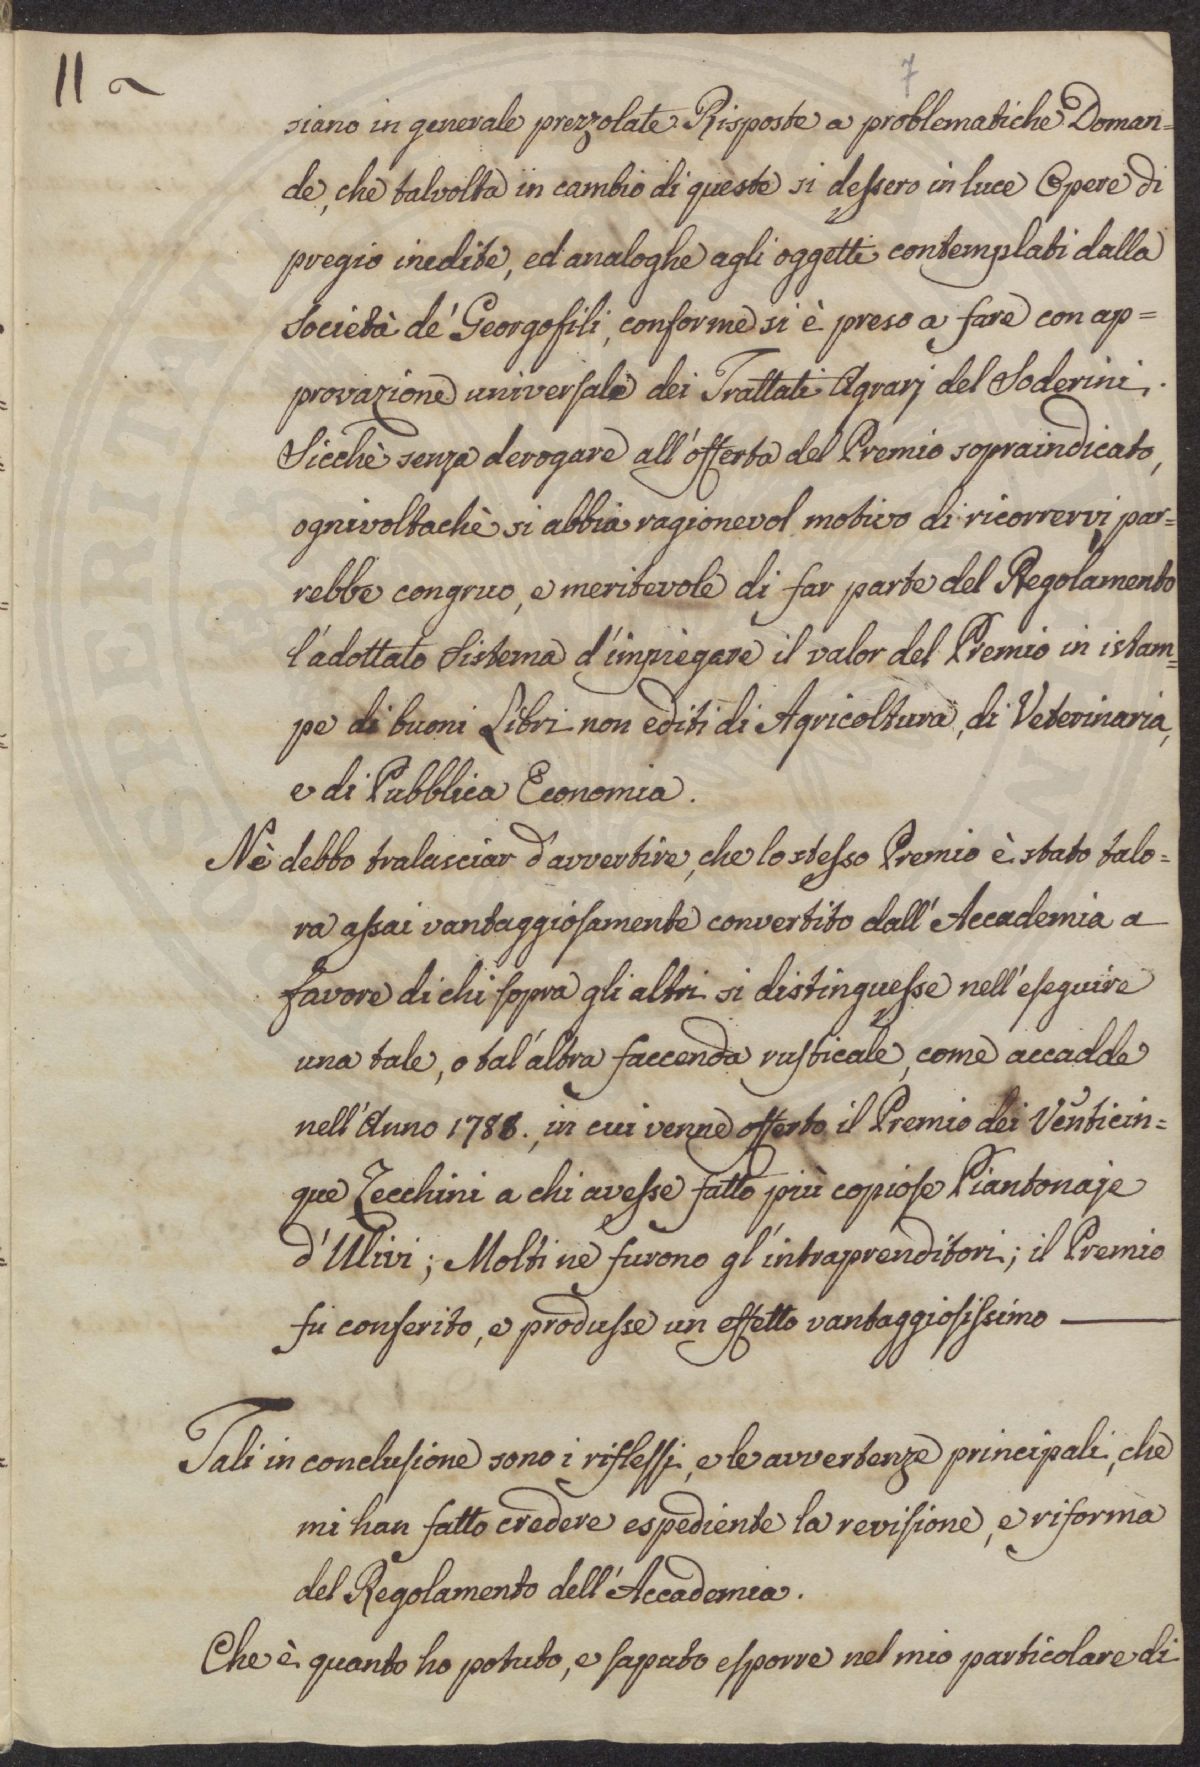 11
7
siano in generale prezzolate Risposte a problematiche Doman=
de, che talvolta in cambio di queste si dessero in luce Opere di
pregio inedite, ed analoghe agli oggetti contemplati dalla
Società de' Georgofili, conforme si è preso a fare con ap=
provazione universale dei Trattati Agrarj del Soderini.
Sicchè senza derogare all'offerta del Premio sopraindicato,
ognivoltachè si abbia ragionevol motivo di ricorrervi par=
rebbe congruo, e meritevole di far parte del Regolamento
l'adottato Sistema d'impiegare il valor del Premio in istam=
pe di buoni Libri non editi di Agricoltura, di Veterinaria,
e di Pubblica Economia.
Nè debbo tralasciar d'avvertire, che lo stesso Premio è stato talo=
ra assai vantaggiosamente convertito dall'Accademia a
favore di chi sopra gli altri si distinguesse nell'eseguire
una tale, o tal'altra faccenda rusticale, come accadde
nell'Anno 1788., in cui venne offerto il Premio dei Venticin=
que Zecchini a chi avesse fatto più copiose Piantonaje
d'Ulivi; Molti ne furono gl'intraprenditori; il Premio
fu conferito, e produsse un effetto vantaggiosissimo
Tali in conclusione sono i riflessi, e le avvertenze principali, che
mi han fatto credere espediente la revisione, e riforma
del Regolamento dell'Accademia.
Che è quanto ho potuto, e saputo esporre nel mio particolare di